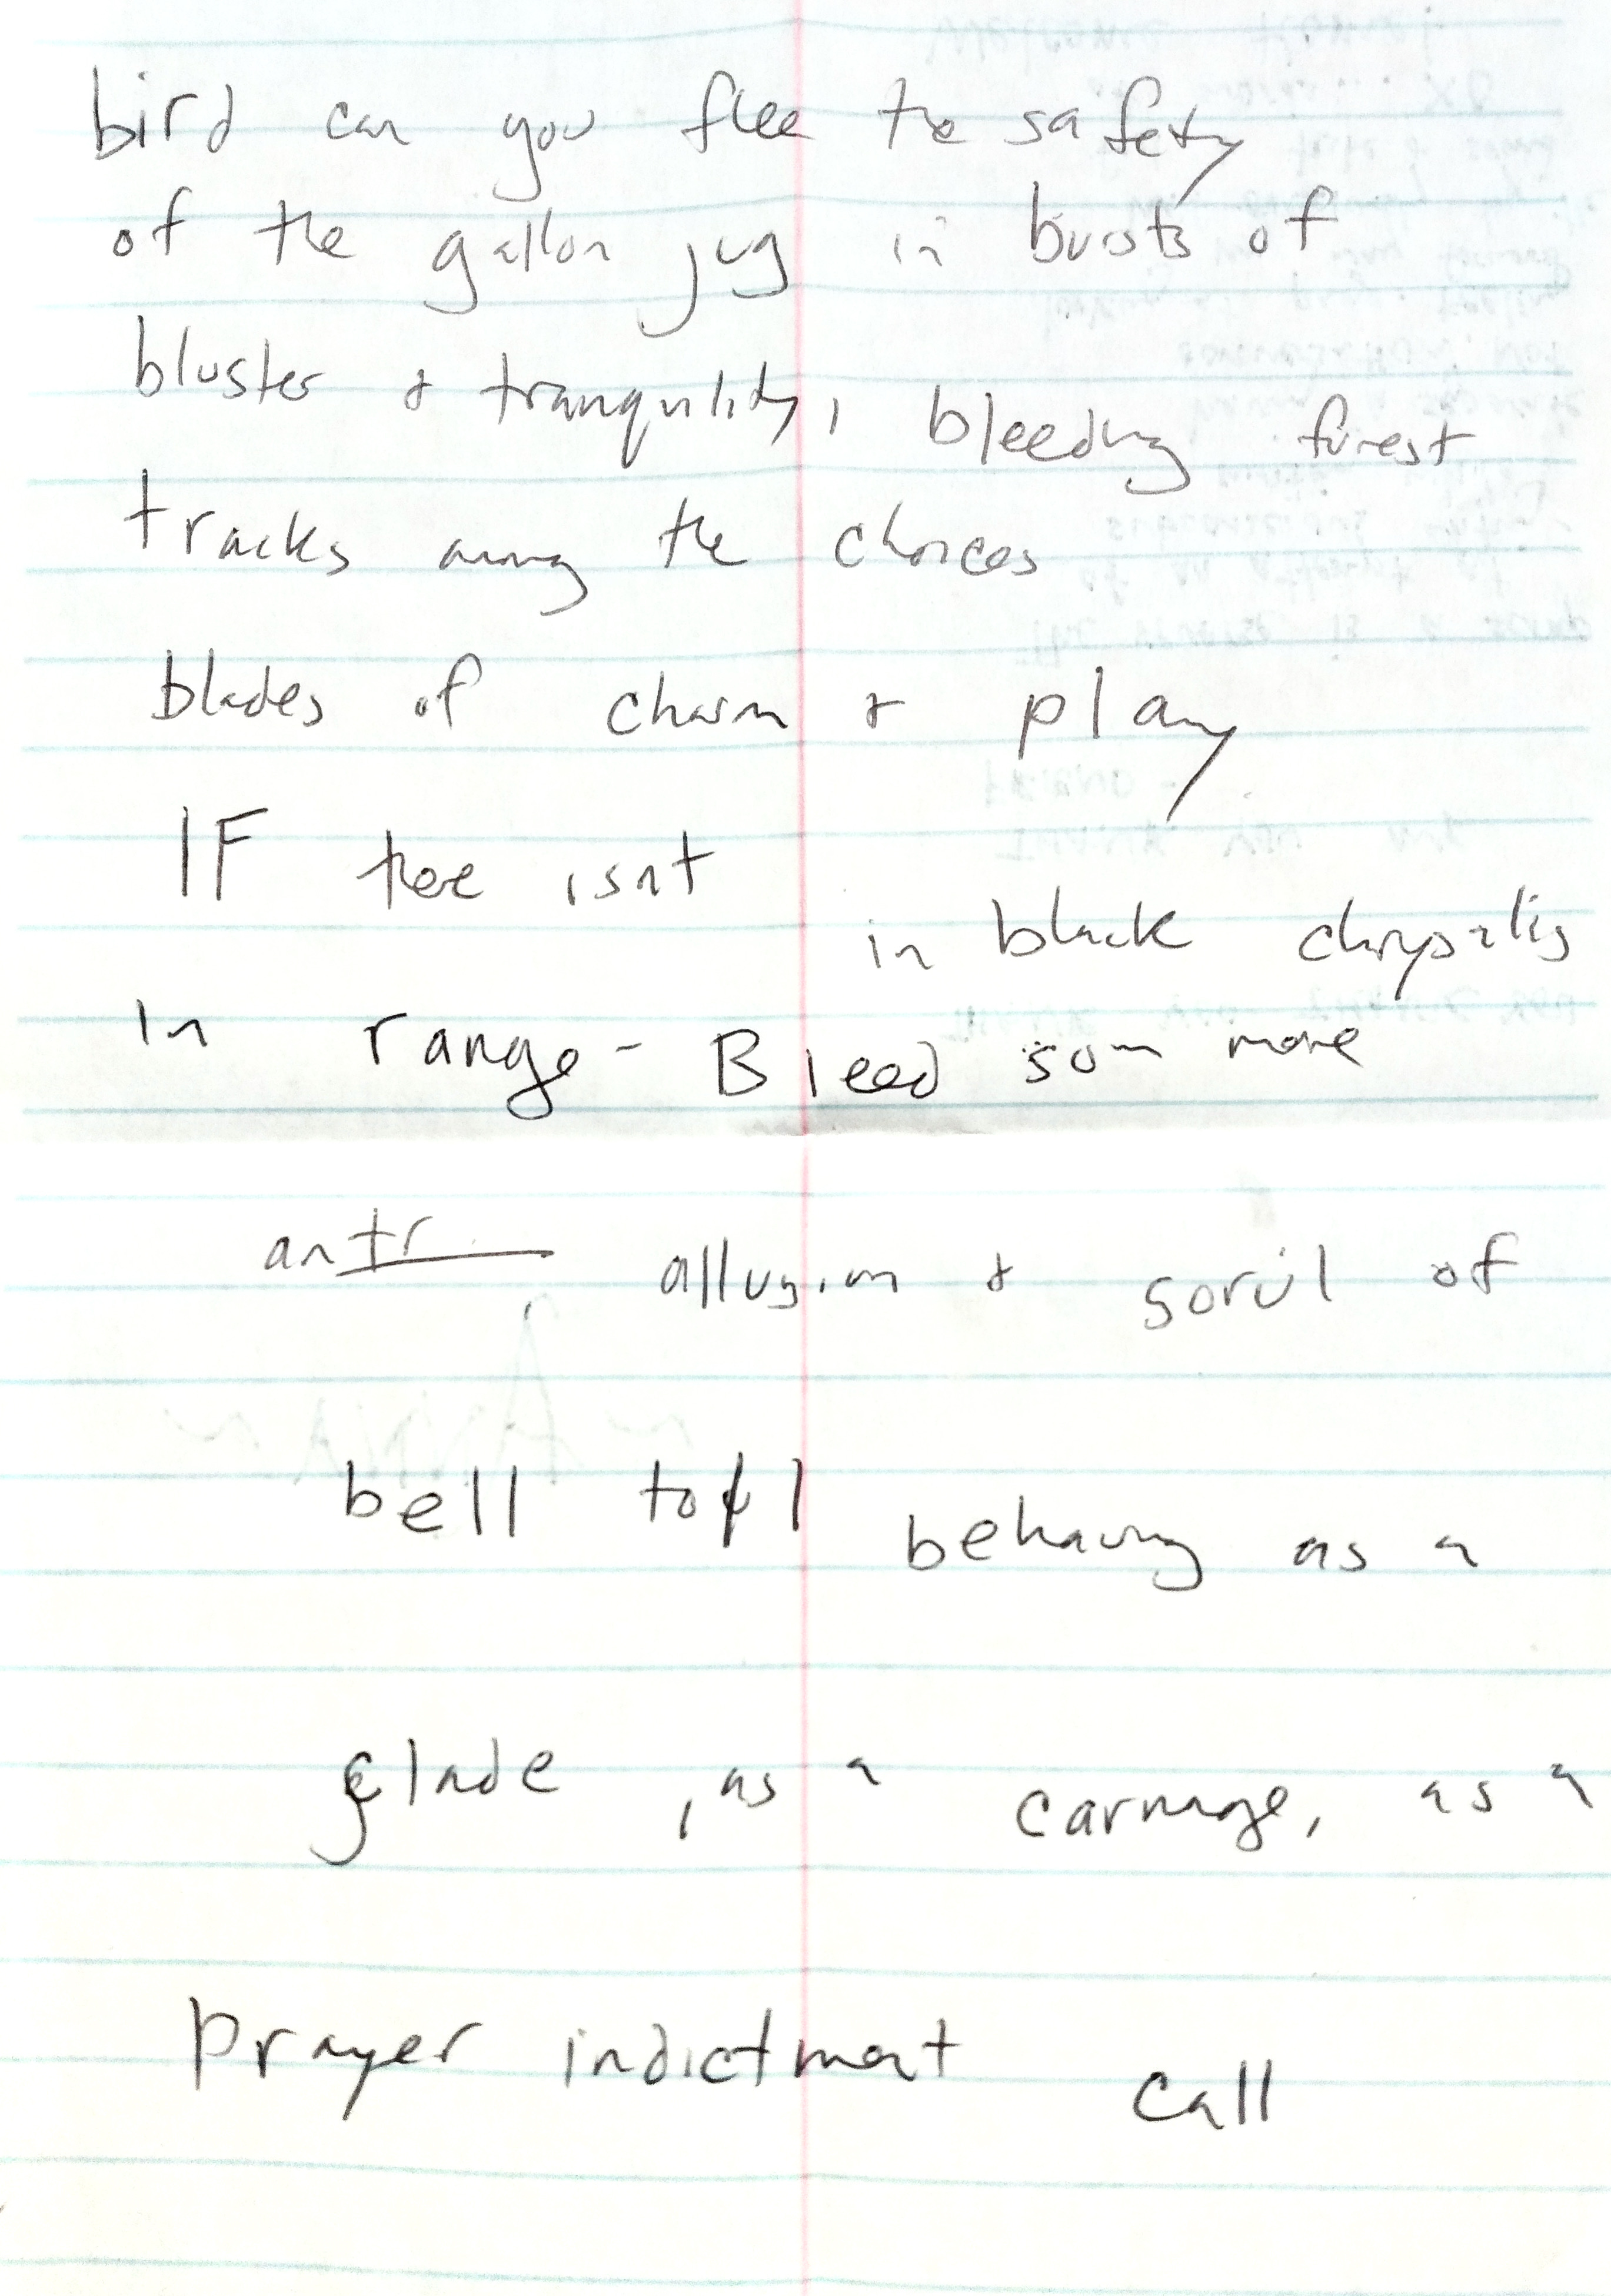 bird can you flee the safety
of the gallon jug in bursts of
bluster & tranquility, bleeding forest
tracks among the choices
blades of charm & play
IF there isnt
in black chrysalis
in range - Bleed som more
allusion & of
bell toll behaving as a
glade, as a carnage, as a
prayer indictment call